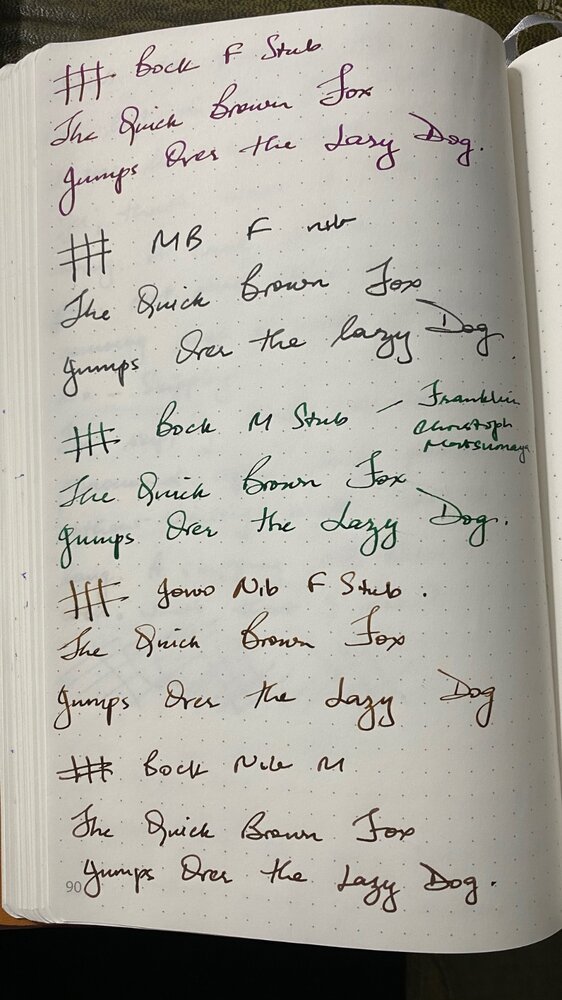 Bock F Stub
The Quick Brown Fox
Jumps Over the Lazy Dog.
MB F nib
The Quick Brown Fox
Jumps Over the lazy Dog.
Bock M Stub – Franklin
Christoph
Matsumaya
The Quick Brown Fox
Jumps Over the Lazy Dog.
Jowo Nib F Stub.
The Quick Brown Fox
Jumps Over the Lazy Dog
Bock Nib M
The Quick Brown Fox
Jumps Over the Lazy Dog.
90